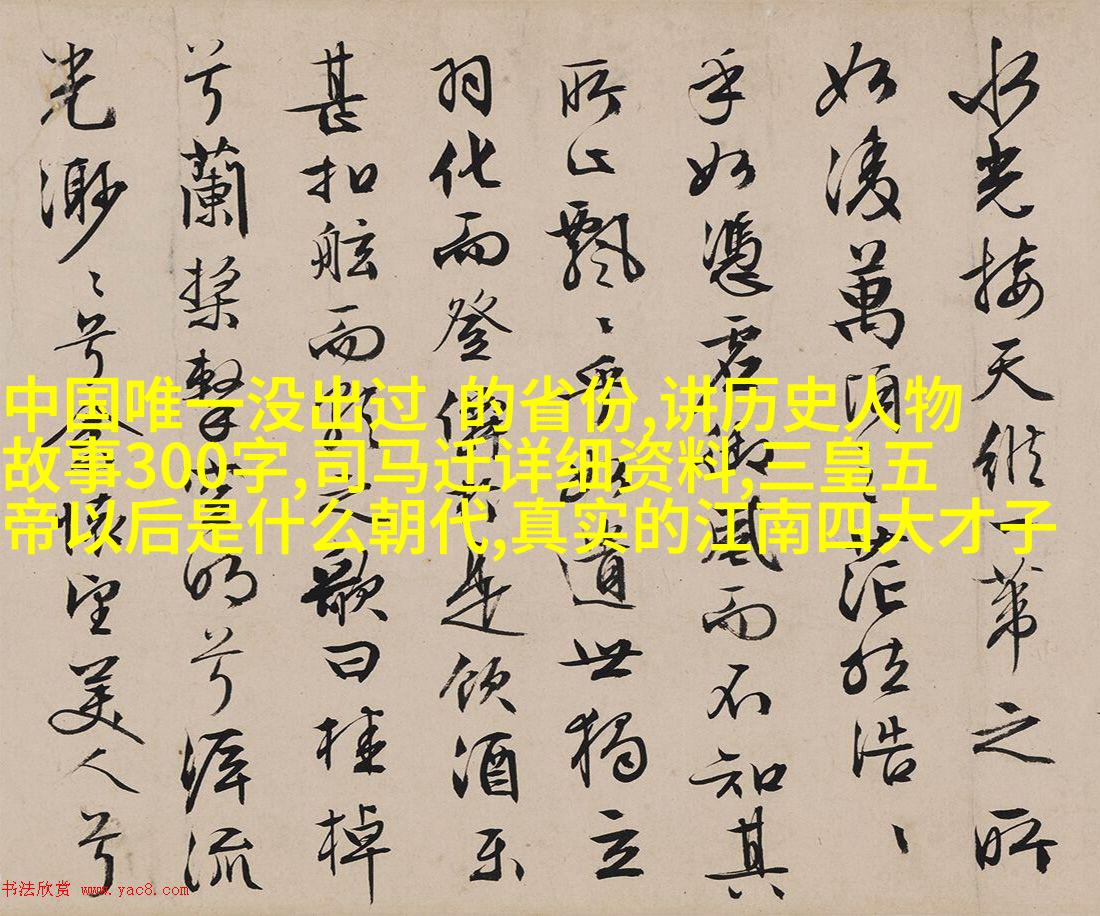 水光接天縱一葦之所
如凌萬頃之茫然浩〻
乎如憑虛御風而不知其
所止飄〻乎如遺世獨立
羽化而登僊於是飲酒樂
甚扣舷而歌之歌曰桂棹
兮蘭槳擊空明兮泝流
光渺〻兮余懷望美人兮
中国唯一没出过 的省份,讲历史人物
故事300字,司马迁详细资料,三皇五
帝以后是什么朝代,真实的江南四大才子
书法欣赏 www.yac8.com